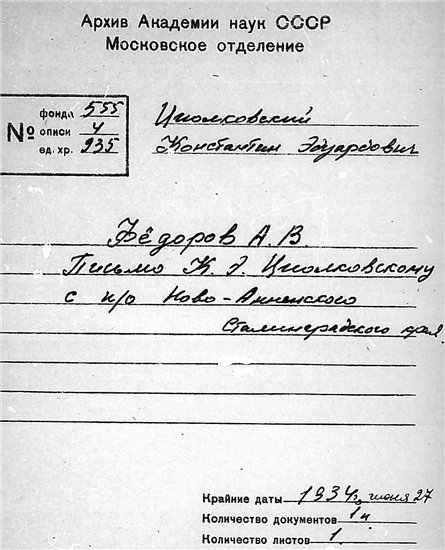 Архив Академии наук СССР
Московское отделение
№ фонда 555
описи 4
ед. хр. 235
Циолковский
Константин Эдуардович
Фёдоров А. В.
Письмо К. Э. Циолковскому
с п/о Ново-Анненского
Сталинградского края.
Крайние даты 1934г. июня 27
Количество документов 1
Количество листов 1.